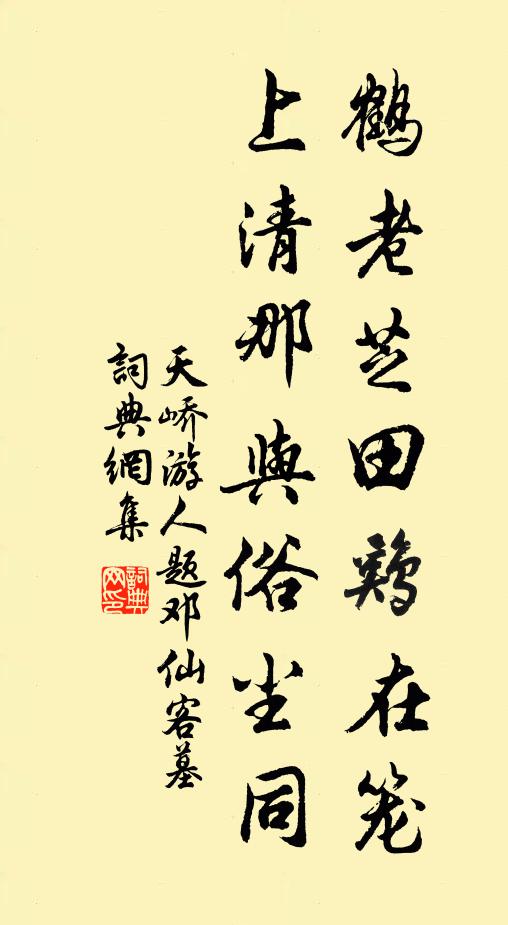 鹤老芝田鸡在笼
上清那与俗尘同
天峤游人题邓仙客墓
詞典網集
詞典网印